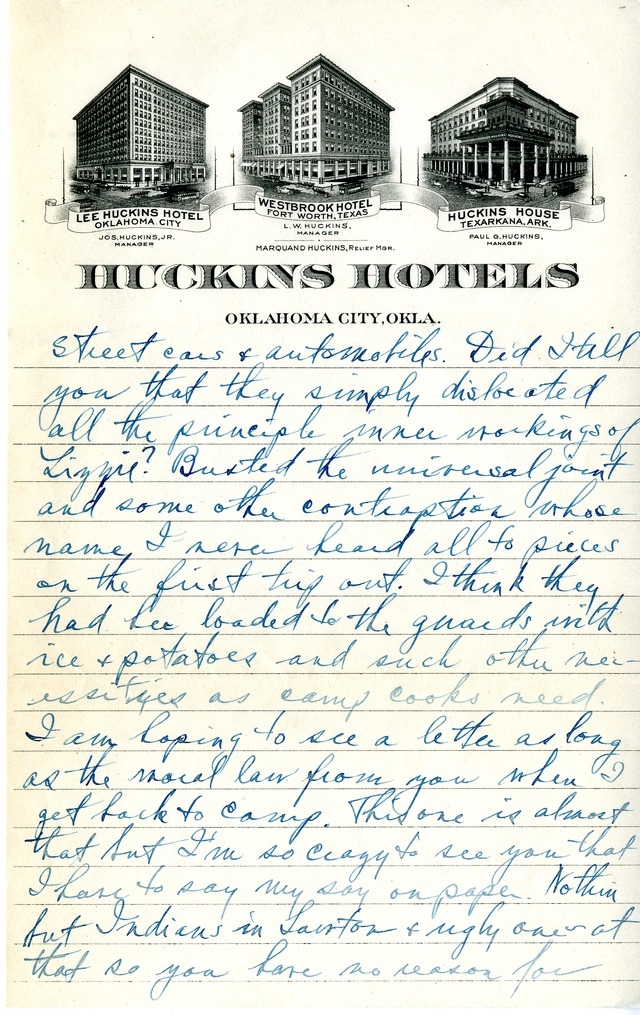 LEE HUCKINS HOTEL
OKLAHOMA CITY
JOS. HUCKINS, JR.
MANAGER
WESTBROOK HOTEL
FORT WORTH, TEXAS
L. W. HUCKINS,
MANAGER
MARQUAND HUCKINS, RELIEF MGR.
HUCKINS HOUSE
TEXARKANA, ARK.
PAUL G. HUCKINS,
MANAGER
HUCKINS HOTELS
OKLAHOMA CITY, OKLA.
street cars & automobiles. Did I tell
you that they simply dislocated
all the principle inner workings of
Lizzie? Busted the universal joint
and some other contraption whose
name I never heard all to pieces
on the first trip out. I think they
had her loaded to the guards with
ice & potatoes and such other nec-
essities as camp cooks need.
I am hoping to see a letter as long
as the moral law from you when I
get back to camp. This one is almost
that but I'm so crazy to see you that
I have to say my say on paper. Nothin
but Indians in Lawton & ugly ones at
that so you have no reason for